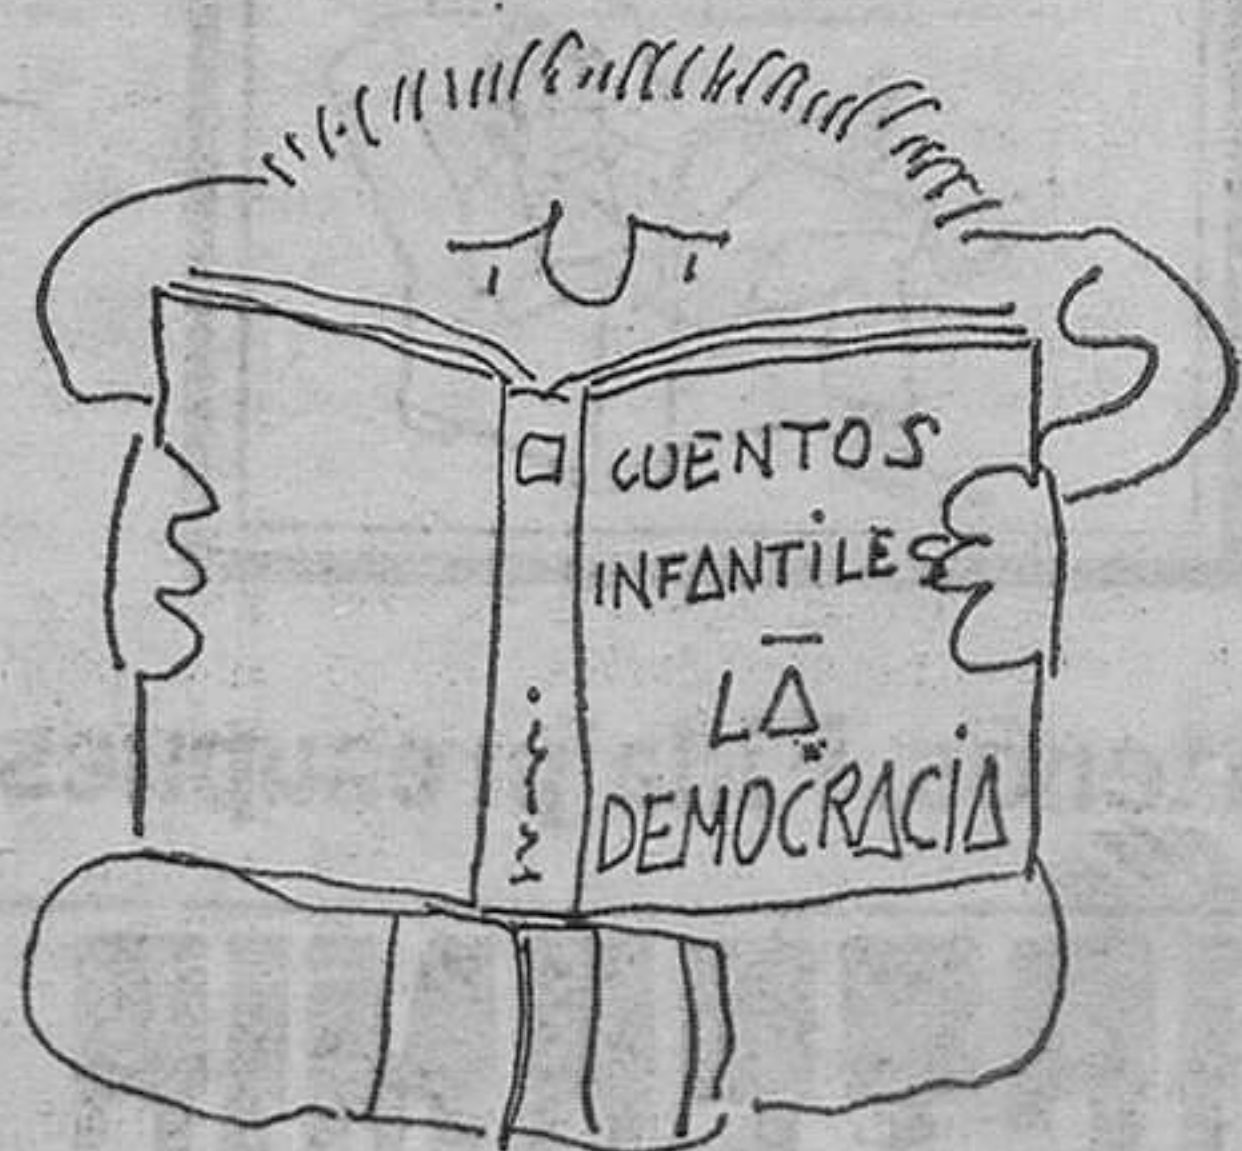 CUENTOS
INFANTILES
LA
DEMOCRACIA